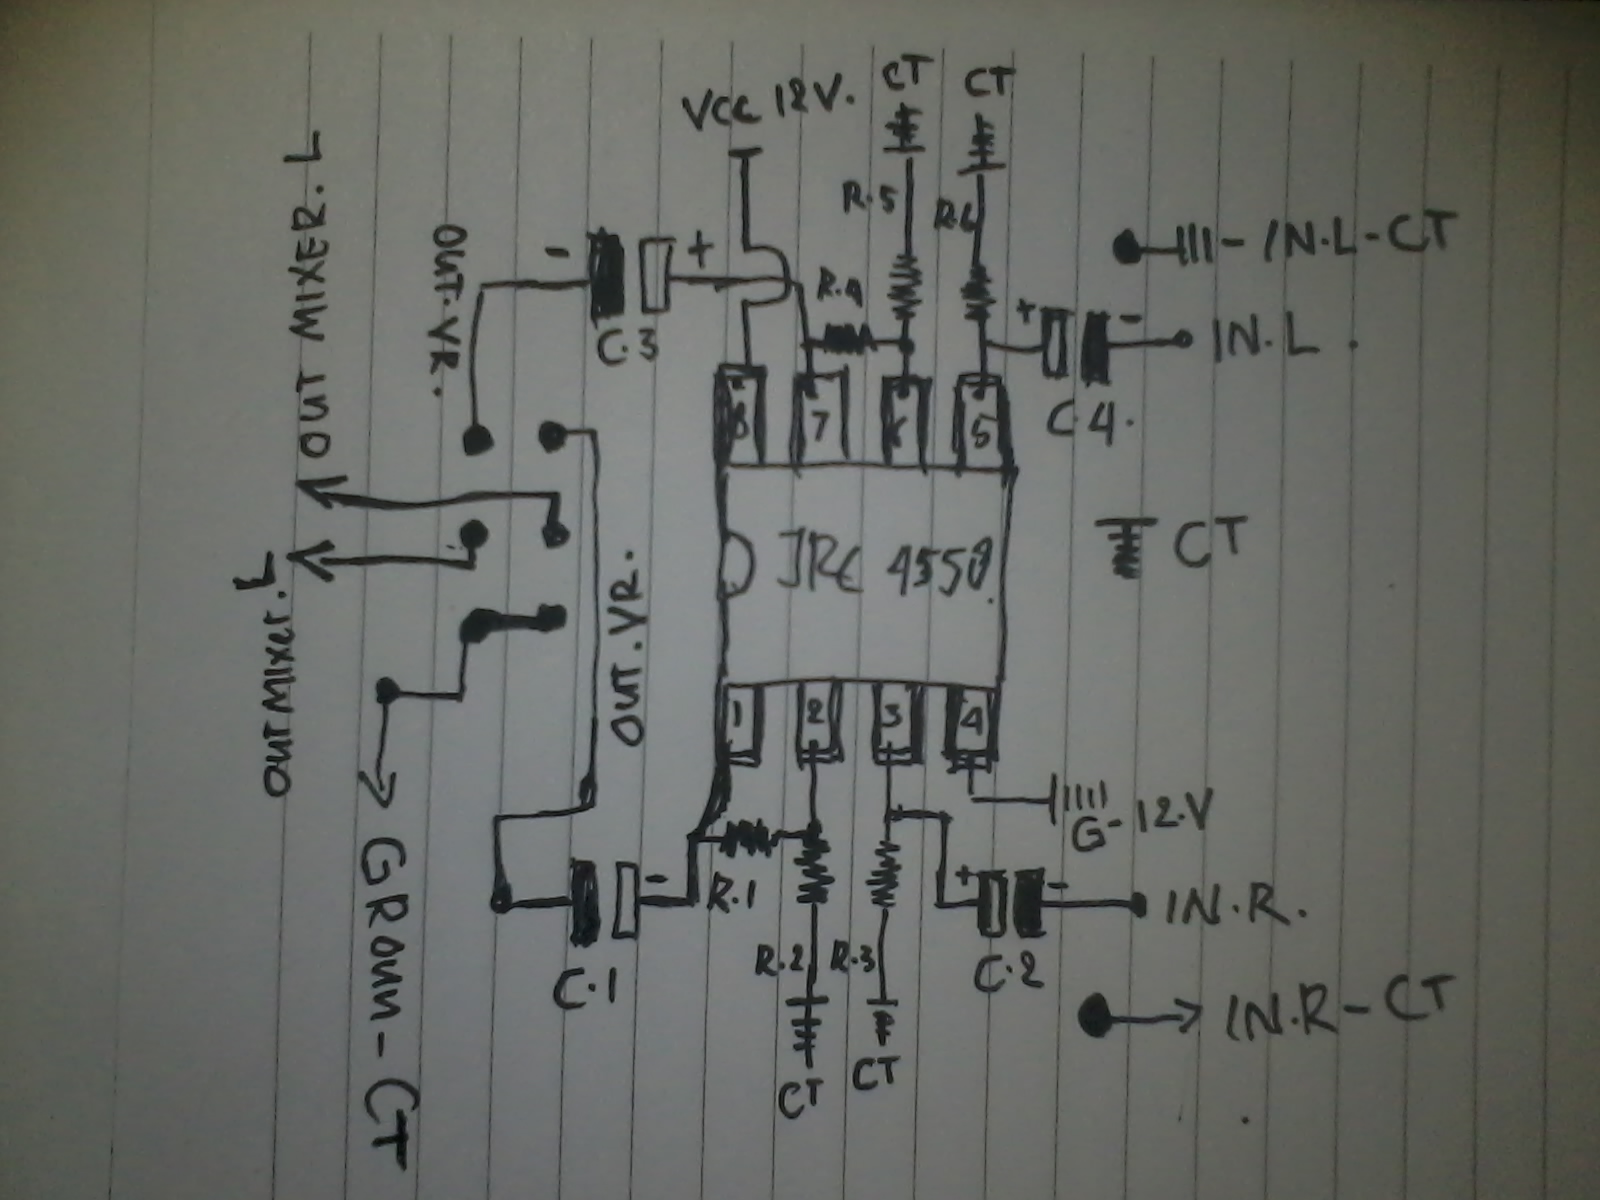 VCC 12V.
CT
CT
R.5
R.6
R.4
+
-
C.3
+
-
C.4.
IN.L-CT
IN.L.
OUT MIXER. L
OUT.VR.
8
7
6
5
JRC 4558.
CT
OUT MIXer. L
OUT.VR.
1
2
3
4
G-12.V
R.1
R.2
R.3
-
C.1
+
-
C.2
IN.R.
IN.R-CT
CT
CT
GROUN-CT